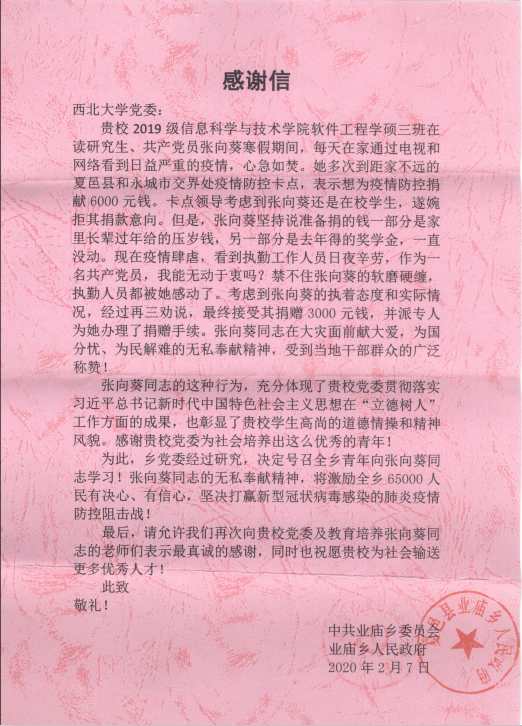 感谢信
西北大学党委：
贵校 2019 级信息科学与技术学院软件工程学硕三班在
读研究生、共产党员张向葵寒假期间，每天在家通过电视和
网络看到日益严重的疫情，心急如焚。她多次到距家不远的
夏邑县和永城市交界处疫情防控卡点，表示想为疫情防控捐
献6000 元钱。卡点领导考虑到张向葵还是在校学生，遂婉
拒其捐款意向。但是，张向葵坚持说准备捐的钱一部分是家
里长辈过年给的压岁钱，另一部分是去年得的奖学金，一直
没动。现在疫情肆虐，看到执勤工作人员日夜辛劳，作为一
名共产党员，我能无动于衷吗？禁不住张向葵的软磨硬缠，
执勤人员都被她感动了。考虑到张向葵的执着态度和实际情
况，经过再三劝说，最终接受其捐赠 3000 元钱，并派专人
为她办理了捐赠手续。张向葵同志在大灾面前献大爱，为国
分忧、为民解难的无私奉献精神，受到当地干部群众的广泛
称赞！
张向葵同志的这种行为，充分体现了贵校党委贯彻落实
习近平总书记新时代中国特色社会主义思想在“立德树人”
工作方面的成果，也彰显了贵校学生高尚的道德情操和精神
风貌。感谢贵校党委为社会培养出这么优秀的青年！
为此，乡党委经过研究，决定号召全乡青年向张向葵同
志学习！张向葵同志的无私奉献精神，将激励全乡 65000 人
民有决心、有信心，坚决打赢新型冠状病毒感染的肺炎疫情
防控阻击战！
最后，请允许我们再次向贵校党委及教育培养张向葵同
志的老师们表示最真诚的感谢，同时也祝愿贵校为社会输送
更多优秀人才！
此致
敬礼！
中共业庙乡委员会
业庙乡人民政府
2020 年 2 月 7 日
夏邑县业庙乡人民政府